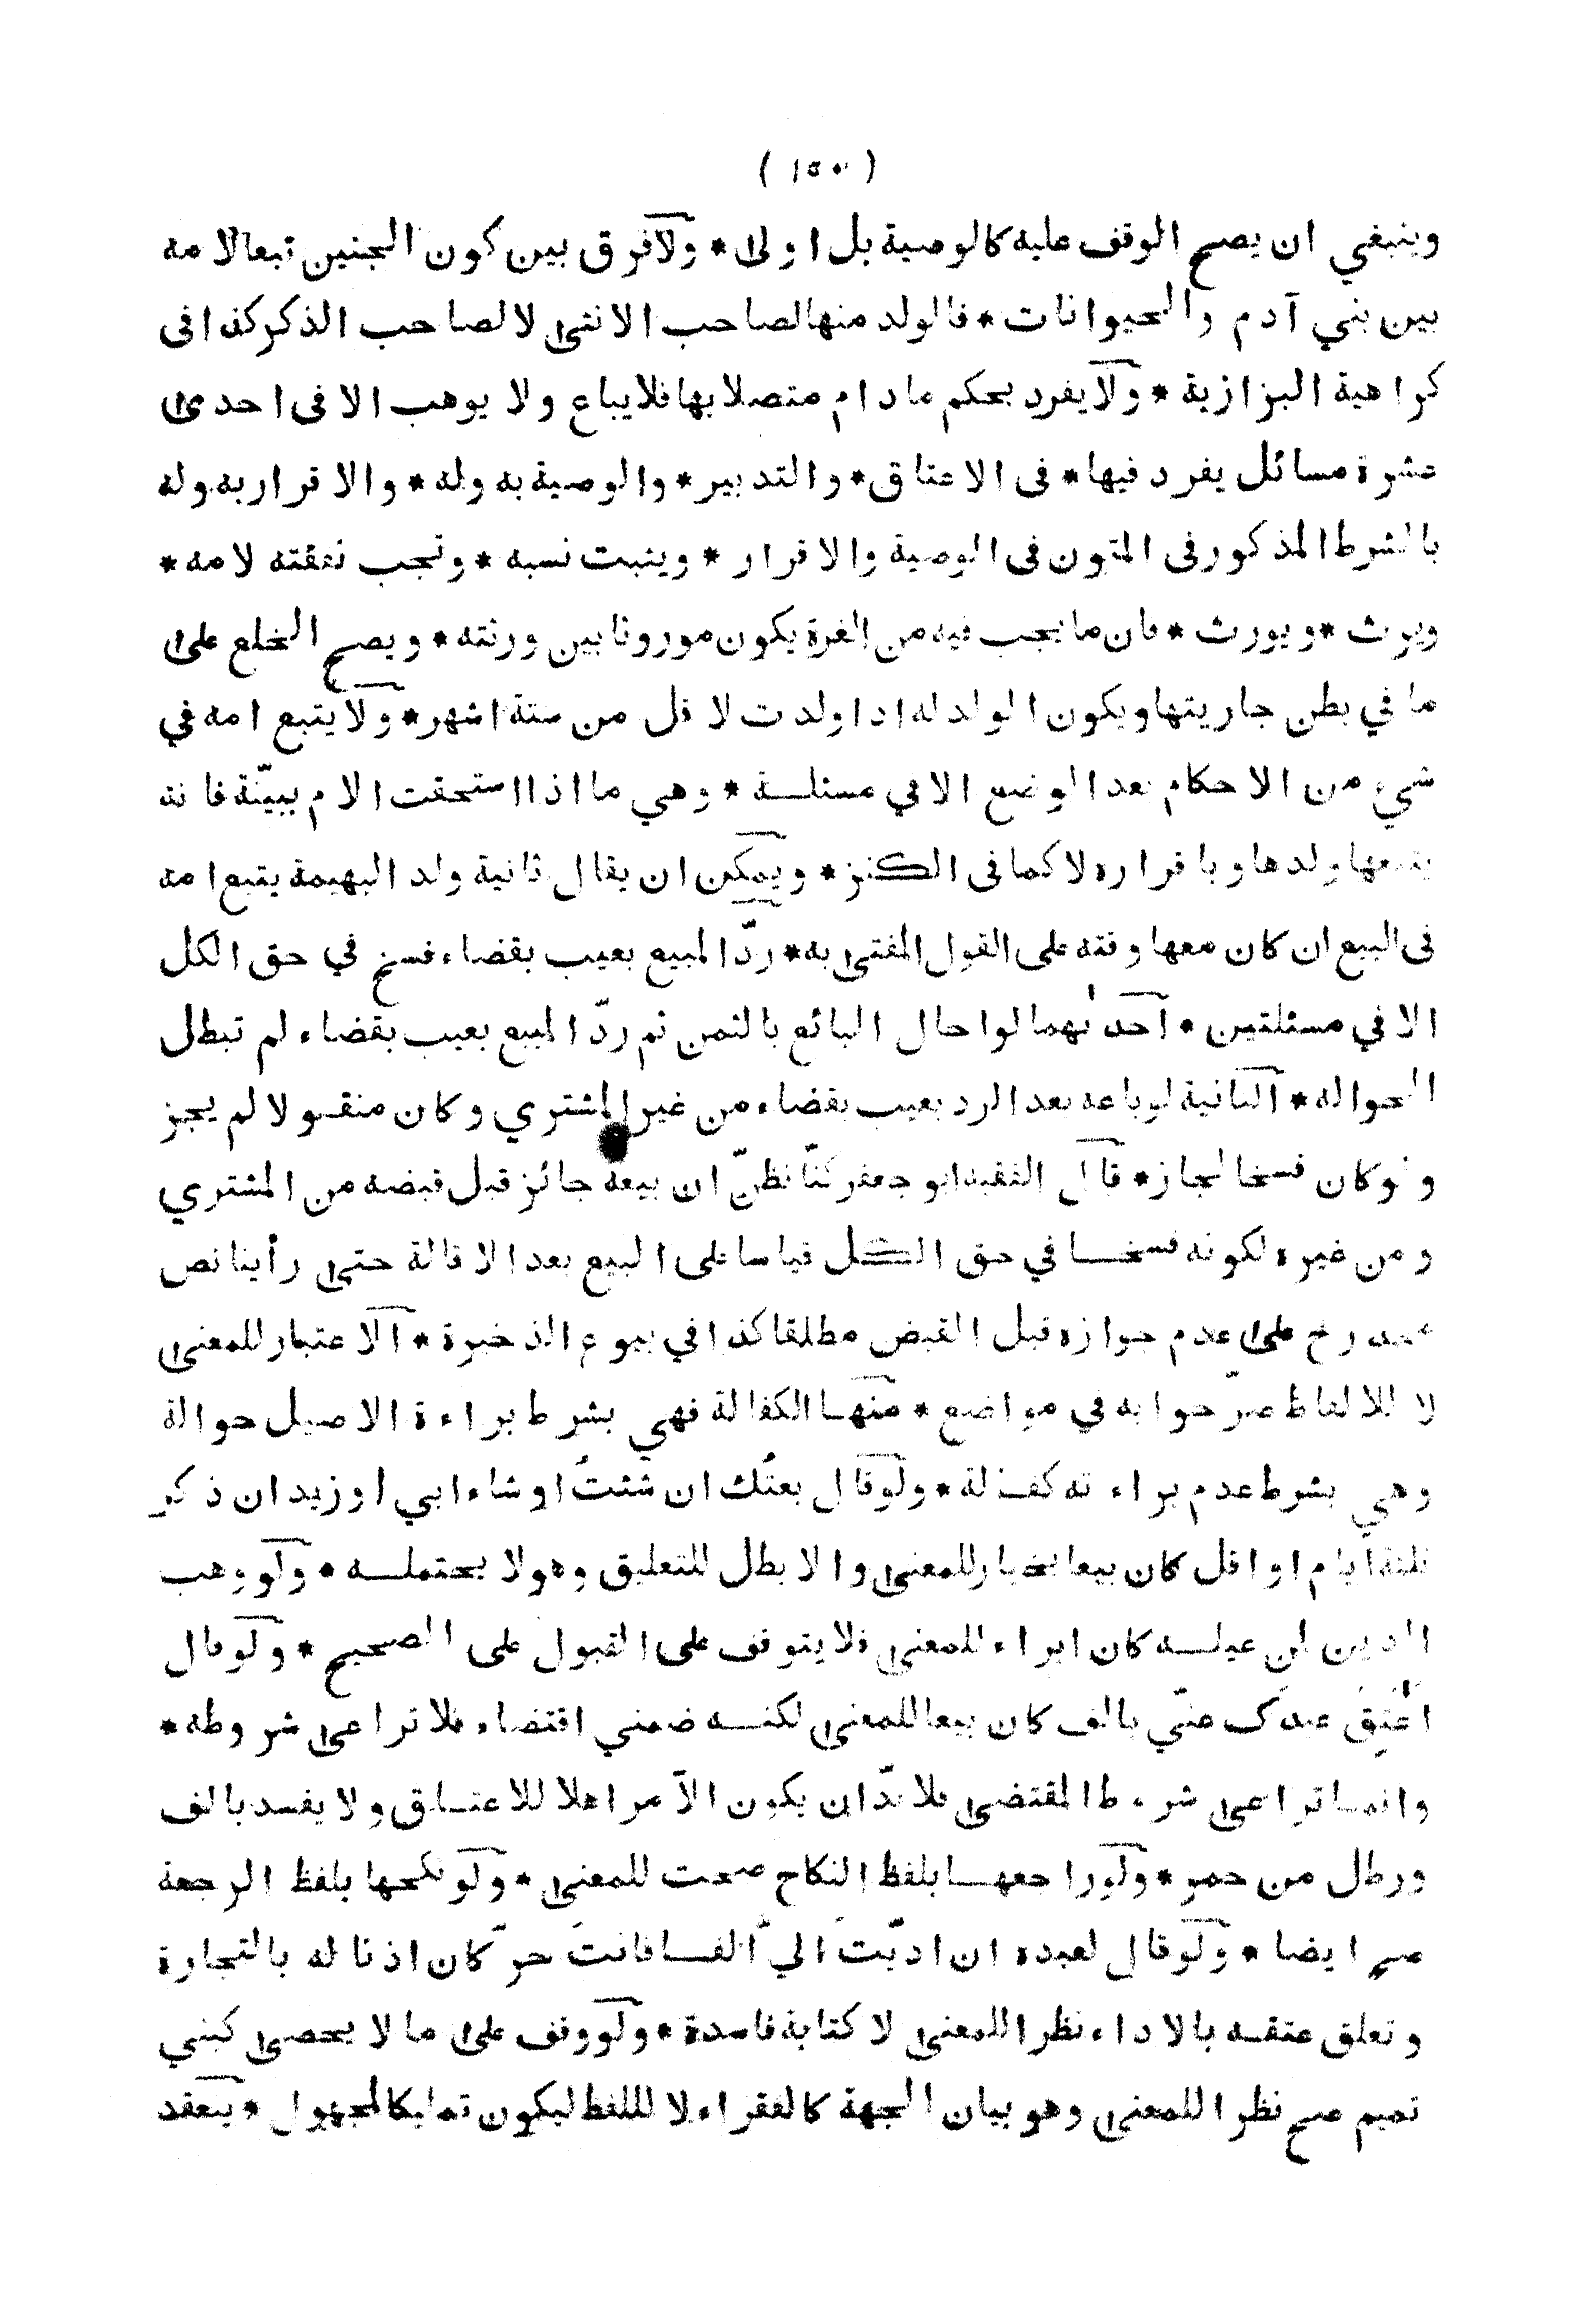 ( ١٥٠ )
وينبغي ان يصح الوقف عليه كالوصية بل اولى * ولا فرق بين كون الجنين تبعا لامه
بين بني آدم والحيوانات * فالولد منها لصاحب الانثى لا لصاحب الذكر كذا فى
كراهية البزازية * ولا يفرد بحكم ما دام متصلا بها فلا يباع ولا يوهب الا فى احدى
عشرة مسائل يفرد فيها * فى الاعتاق * والتدبير * والوصية به وله * والاقرار به وله
بالشرط المذكور فى المتون فى الوصية والاقرار * ويثبت نسبه * وتجب نفقته لامه *
ويرث * ويورث * فان ما يجب فيه من الغرة يكون موروثا بين ورثته * ويصح الخلع على
ما في بطن جاريتها ويكون الولد له اذا ولدت لاقل من ستة اشهر * ولا يتبع امه في
شيء من الاحكام بعد الوضع الا في مسئلة * وهي ما اذا استحقت الام ببيّنة فانه
يتبعها ولدها وباقراره لا كما فى الكنز * ويمكن ان يقال ثانية ولد البهيمة يتبع امه
فى البيع ان كان معها وقته على القول المفتى به * ردّ المبيع بعيب بقضاء فسخ في حق الكل
الا في مسئلتين * احدٰهما لو احال البائع بالثمن ثم ردّ المبيع بعيب بقضاء لم تبطل
الحواله * الثانية لو باعه بعد الرد بعيب بقضاء من غير المشتري وكان منقولا لم يجز
ولو كان فسخا لجاز * قال الفقيه ابو جعفر كنّا نظنّ ان بيعه جائز قبل قبضه من المشتري
ومن غيره لكونه فسخا في حق الكل قياسا على البيع بعد الاقالة حتى رأينا نص
محمد رح على عدم جوازه قبل القبض مطلقا كذا في بيوع الذخيرة * الاعتبار للمعنى
لا للالفاظ صرّحوا به في مواضع * منها الكفالة فهي بشرط براءة الاصيل حوالة
وهي بشرط عدم براءته كفالة * ولو قال بعتُك ان شئتُ او شاء ابي او زيد ان ذكر
ثلثة ايام او اقل كان بيعا بخيار للمعنى والا بطل للتعليق وهو لا يحتمله * ولو وهب
الدين لمن عليه كان ابراء للمعنى فلا يتوقف على القبول على الصحيح * ولو قال
اعتِق عبدك عنّي بالف كان بيعا للمعنى لكنه ضمني اقتضاء فلا تراعى شروطه *
وانما تراعى شروط المقتضى فلا بدّ ان يكون الآمر اهلا للاعتاق ولا يفسد بالف
ورطل من خمر * ولو راجعها بلفظ النكاح صحت للمعنى * ولو نكحها بلفظ الرجعة
صح ايضا * ولو قال لعبده ان ادّيتَ اليّ الفا فانتَ حرّ كان اذنا له بالتجارة
وتعلق عتقه بالاداء نظرا للمعنى لا كتابة فاسدة * ولو وقف على ما لا يحصى كبني
تميم صح نظرا للمعنى وهو بيان الجهة كالفقراء لا لللفظ ليكون تمليكا لمجهول * ينعقد